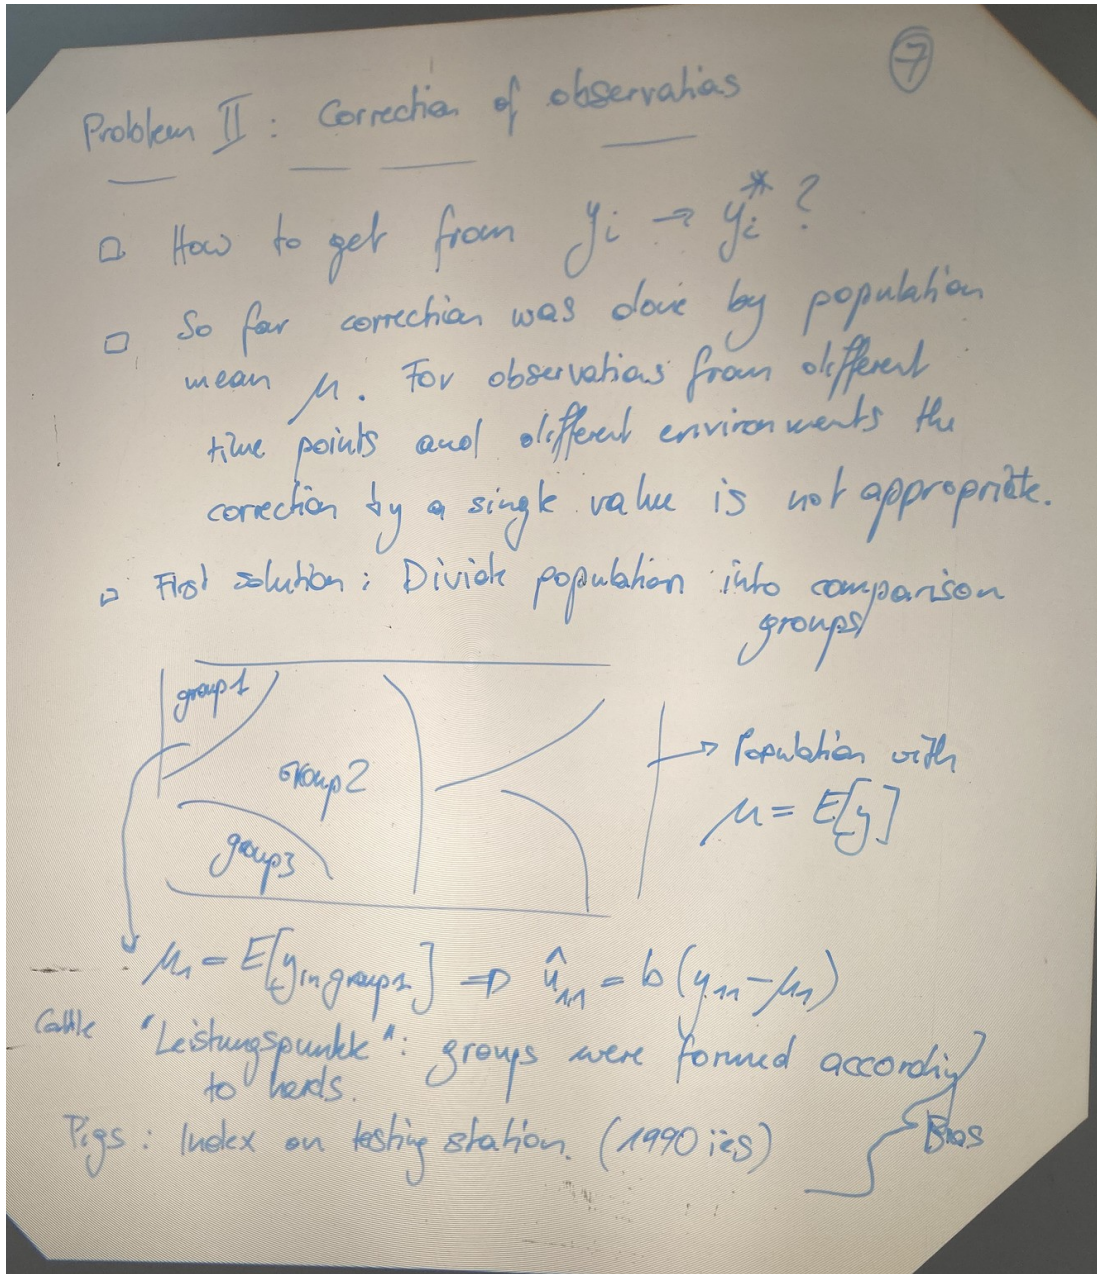 7
Problem II : Correction of observations
□ How to get from yi → yi* ?
□ So far correction was done by population
mean μ. For observations from different
time points and different environments the
correction by a single value is not appropriate.
□ First solution : Divide population into comparison
groups
group1
group2
group3
→ Population with
μ = E[y]
μ1 = E[y in group1] ⇒ û11 = b (y11 - μ1)
Cattle "Leistungspunkte": groups were formed according
to herds.
Pigs : Index on testing station. (1990 ies)
Bias